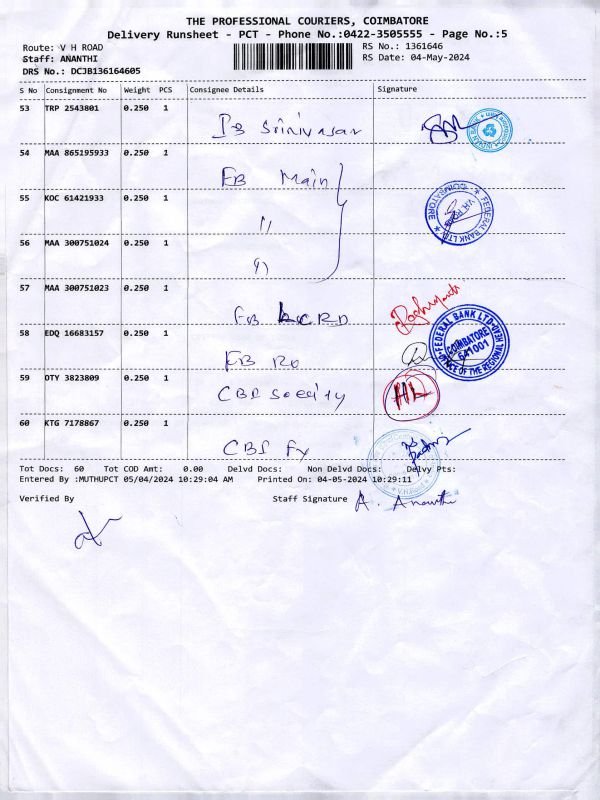 THE PROFESSIONAL COURIERS, COIMBATORE
Delivery Runsheet - PCT - Phone No.:0422-3505555 - Page No.:5
Route: V H ROAD RS No.: 1361646
Staff: ANANTHI RS Date: 04-May-2024
DRS No.: DCJB136164605
S No Consignment No Weight PCS Consignee Details Signature
53 TRP 2543801 0.250 1
IB Srinivasan
54 MAA 865195933 0.250 1
FB Main
55 KOC 61421933 0.250 1
"
FEDERAL BANK LTD
COIMBATORE
56 MAA 300751024 0.250 1
"
57 MAA 300751023 0.250 1
FB LCRD
58 EDQ 16683157 0.250 1
FB RO
FEDERAL BANK LTD
COIMBATORE
641001
OFFICE OF THE REGIONAL HEAD
59 OTY 3823809 0.250 1
CBE Society
60 KTG 7178867 0.250 1
CBS
Tot Docs: 60 Tot COD Amt: 0.00 Delvd Docs: Non Delvd Docs: Delvy Pts:
Entered By :MUTHUPCT 05/04/2024 10:29:04 AM Printed On: 04-05-2024 10:29:11
Verified By Staff Signature A. Ananthi